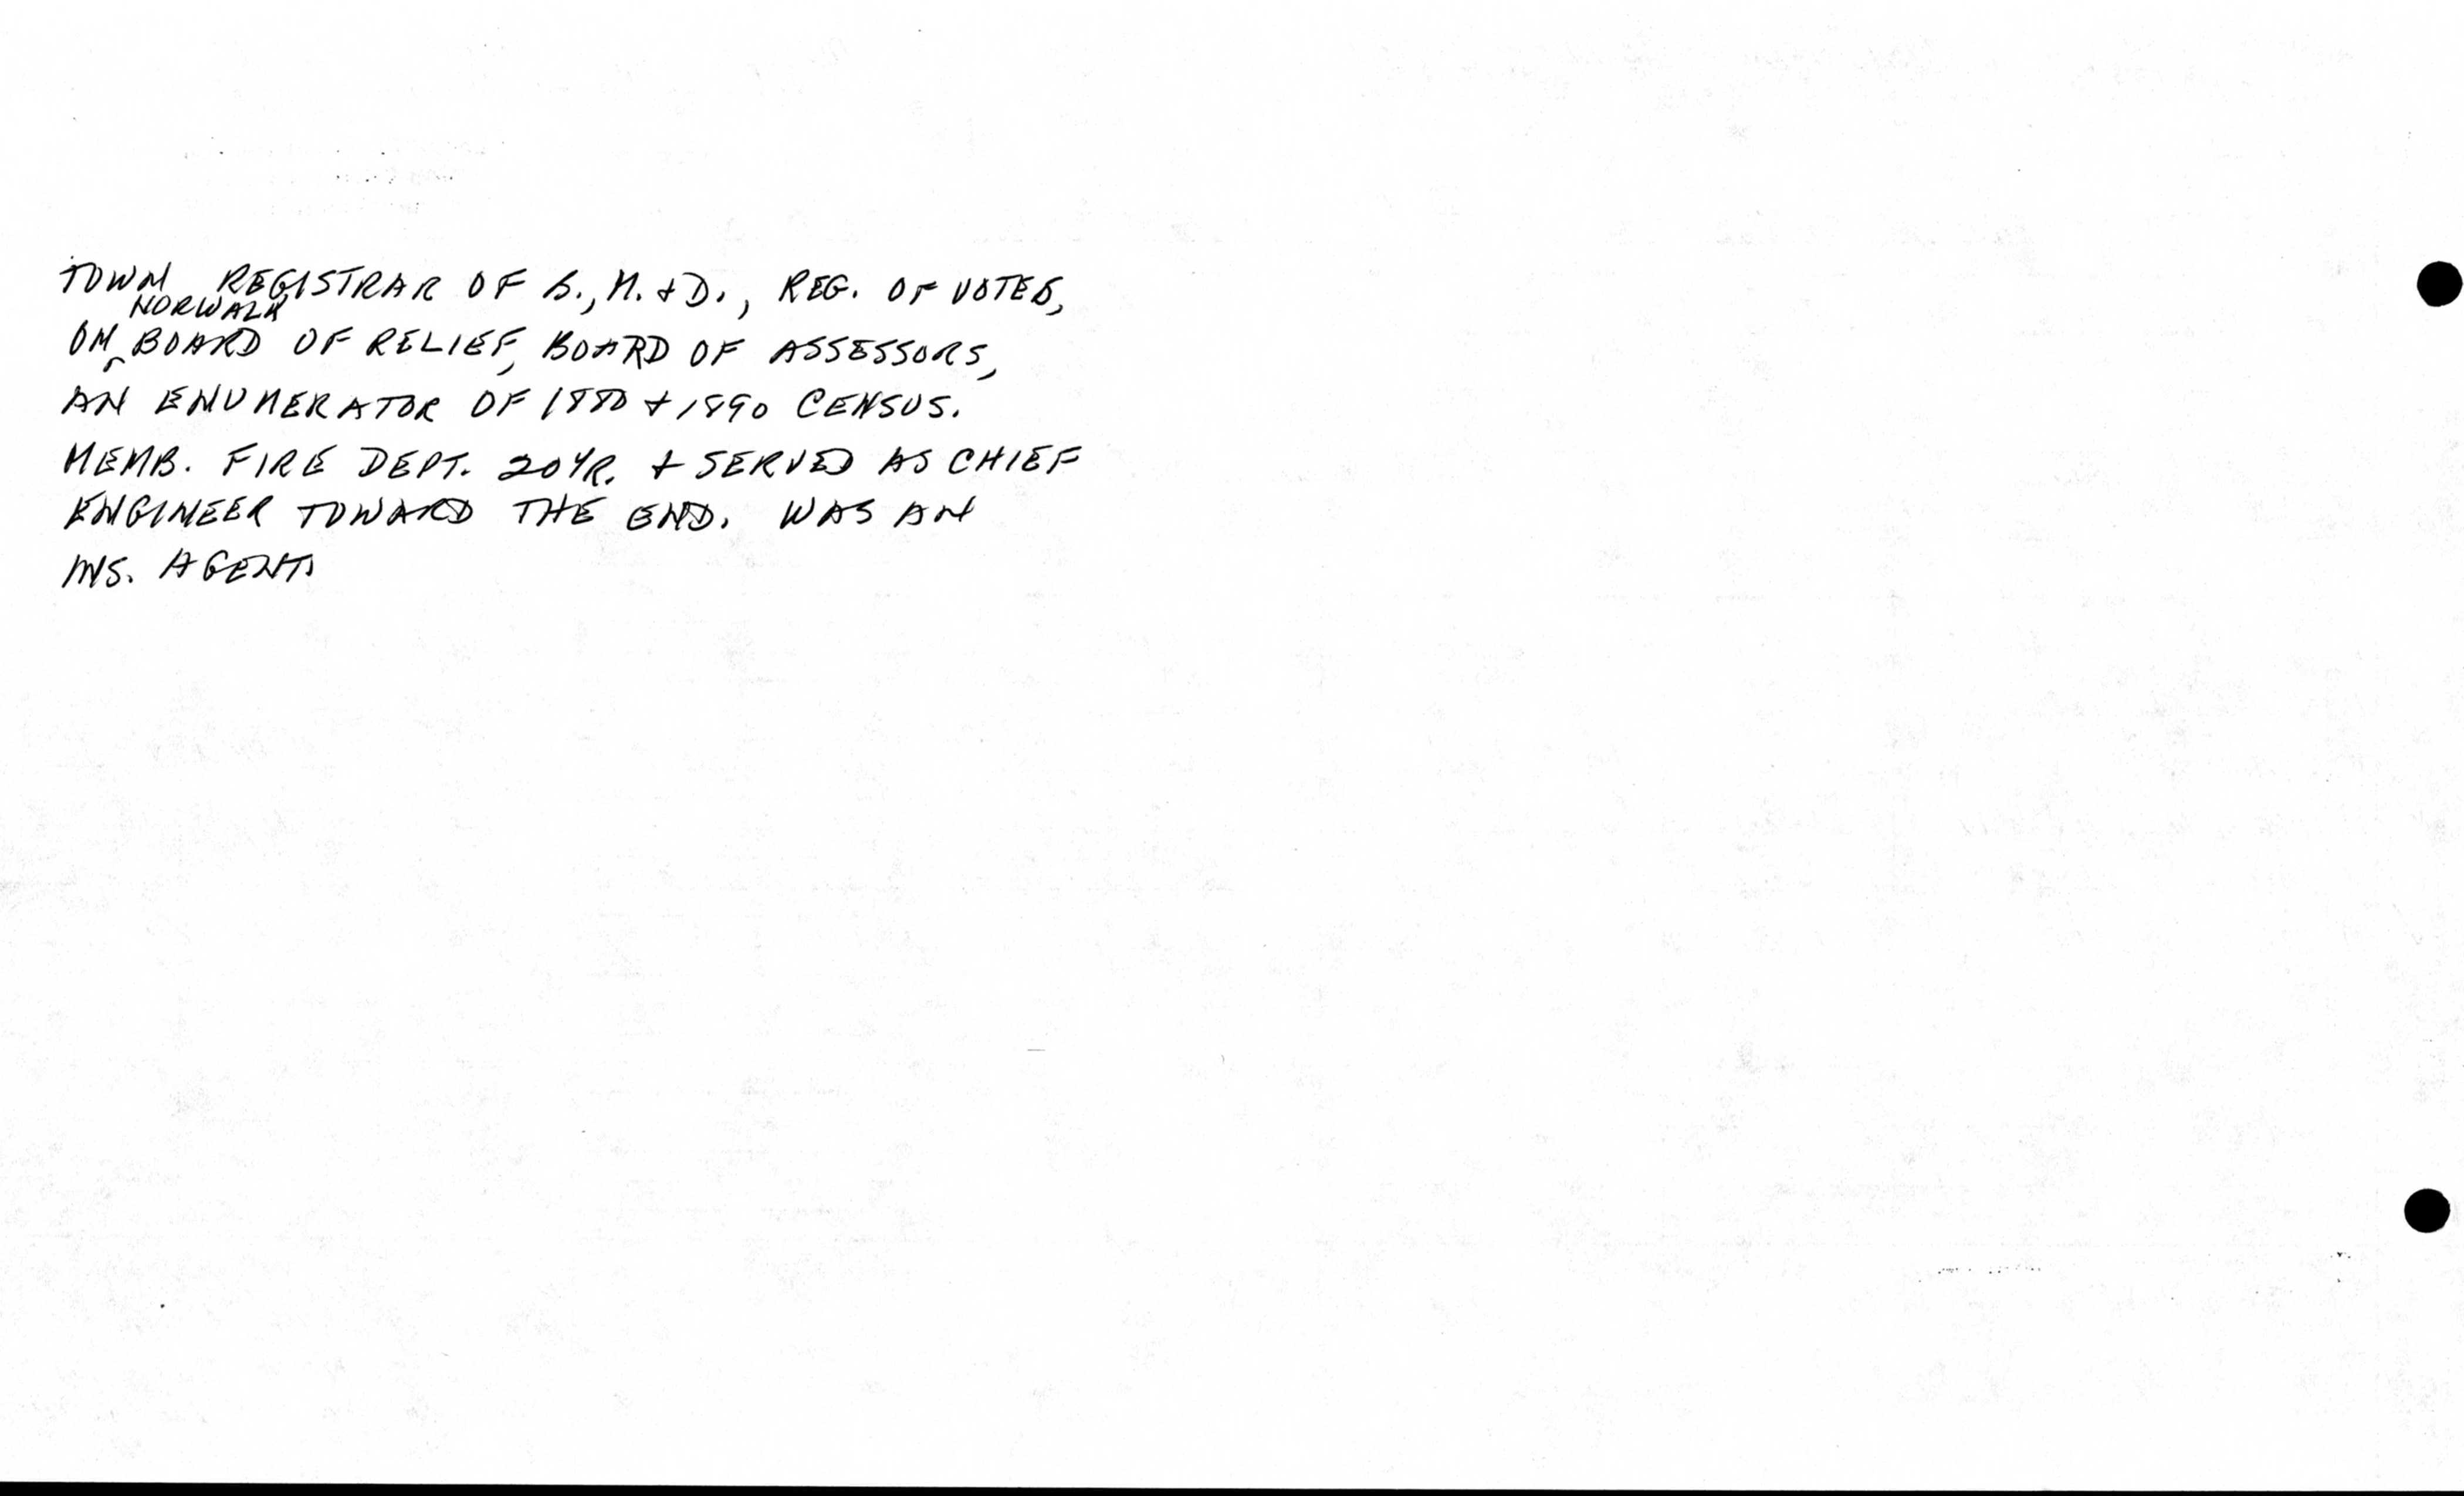 TOWN REGISTRAR OF B., M. + D., REG. OF VOTES,
NORWALK
ON BOARD OF RELIEF, BOARD OF ASSESSORS,
AN ENUMERATOR OF 1880 + 1890 CENSUS.
MEMB. FIRE DEPT. 20 YR. + SERVED AS CHIEF
ENGINEER TOWARD THE END. WAS AN
INS. AGENT.